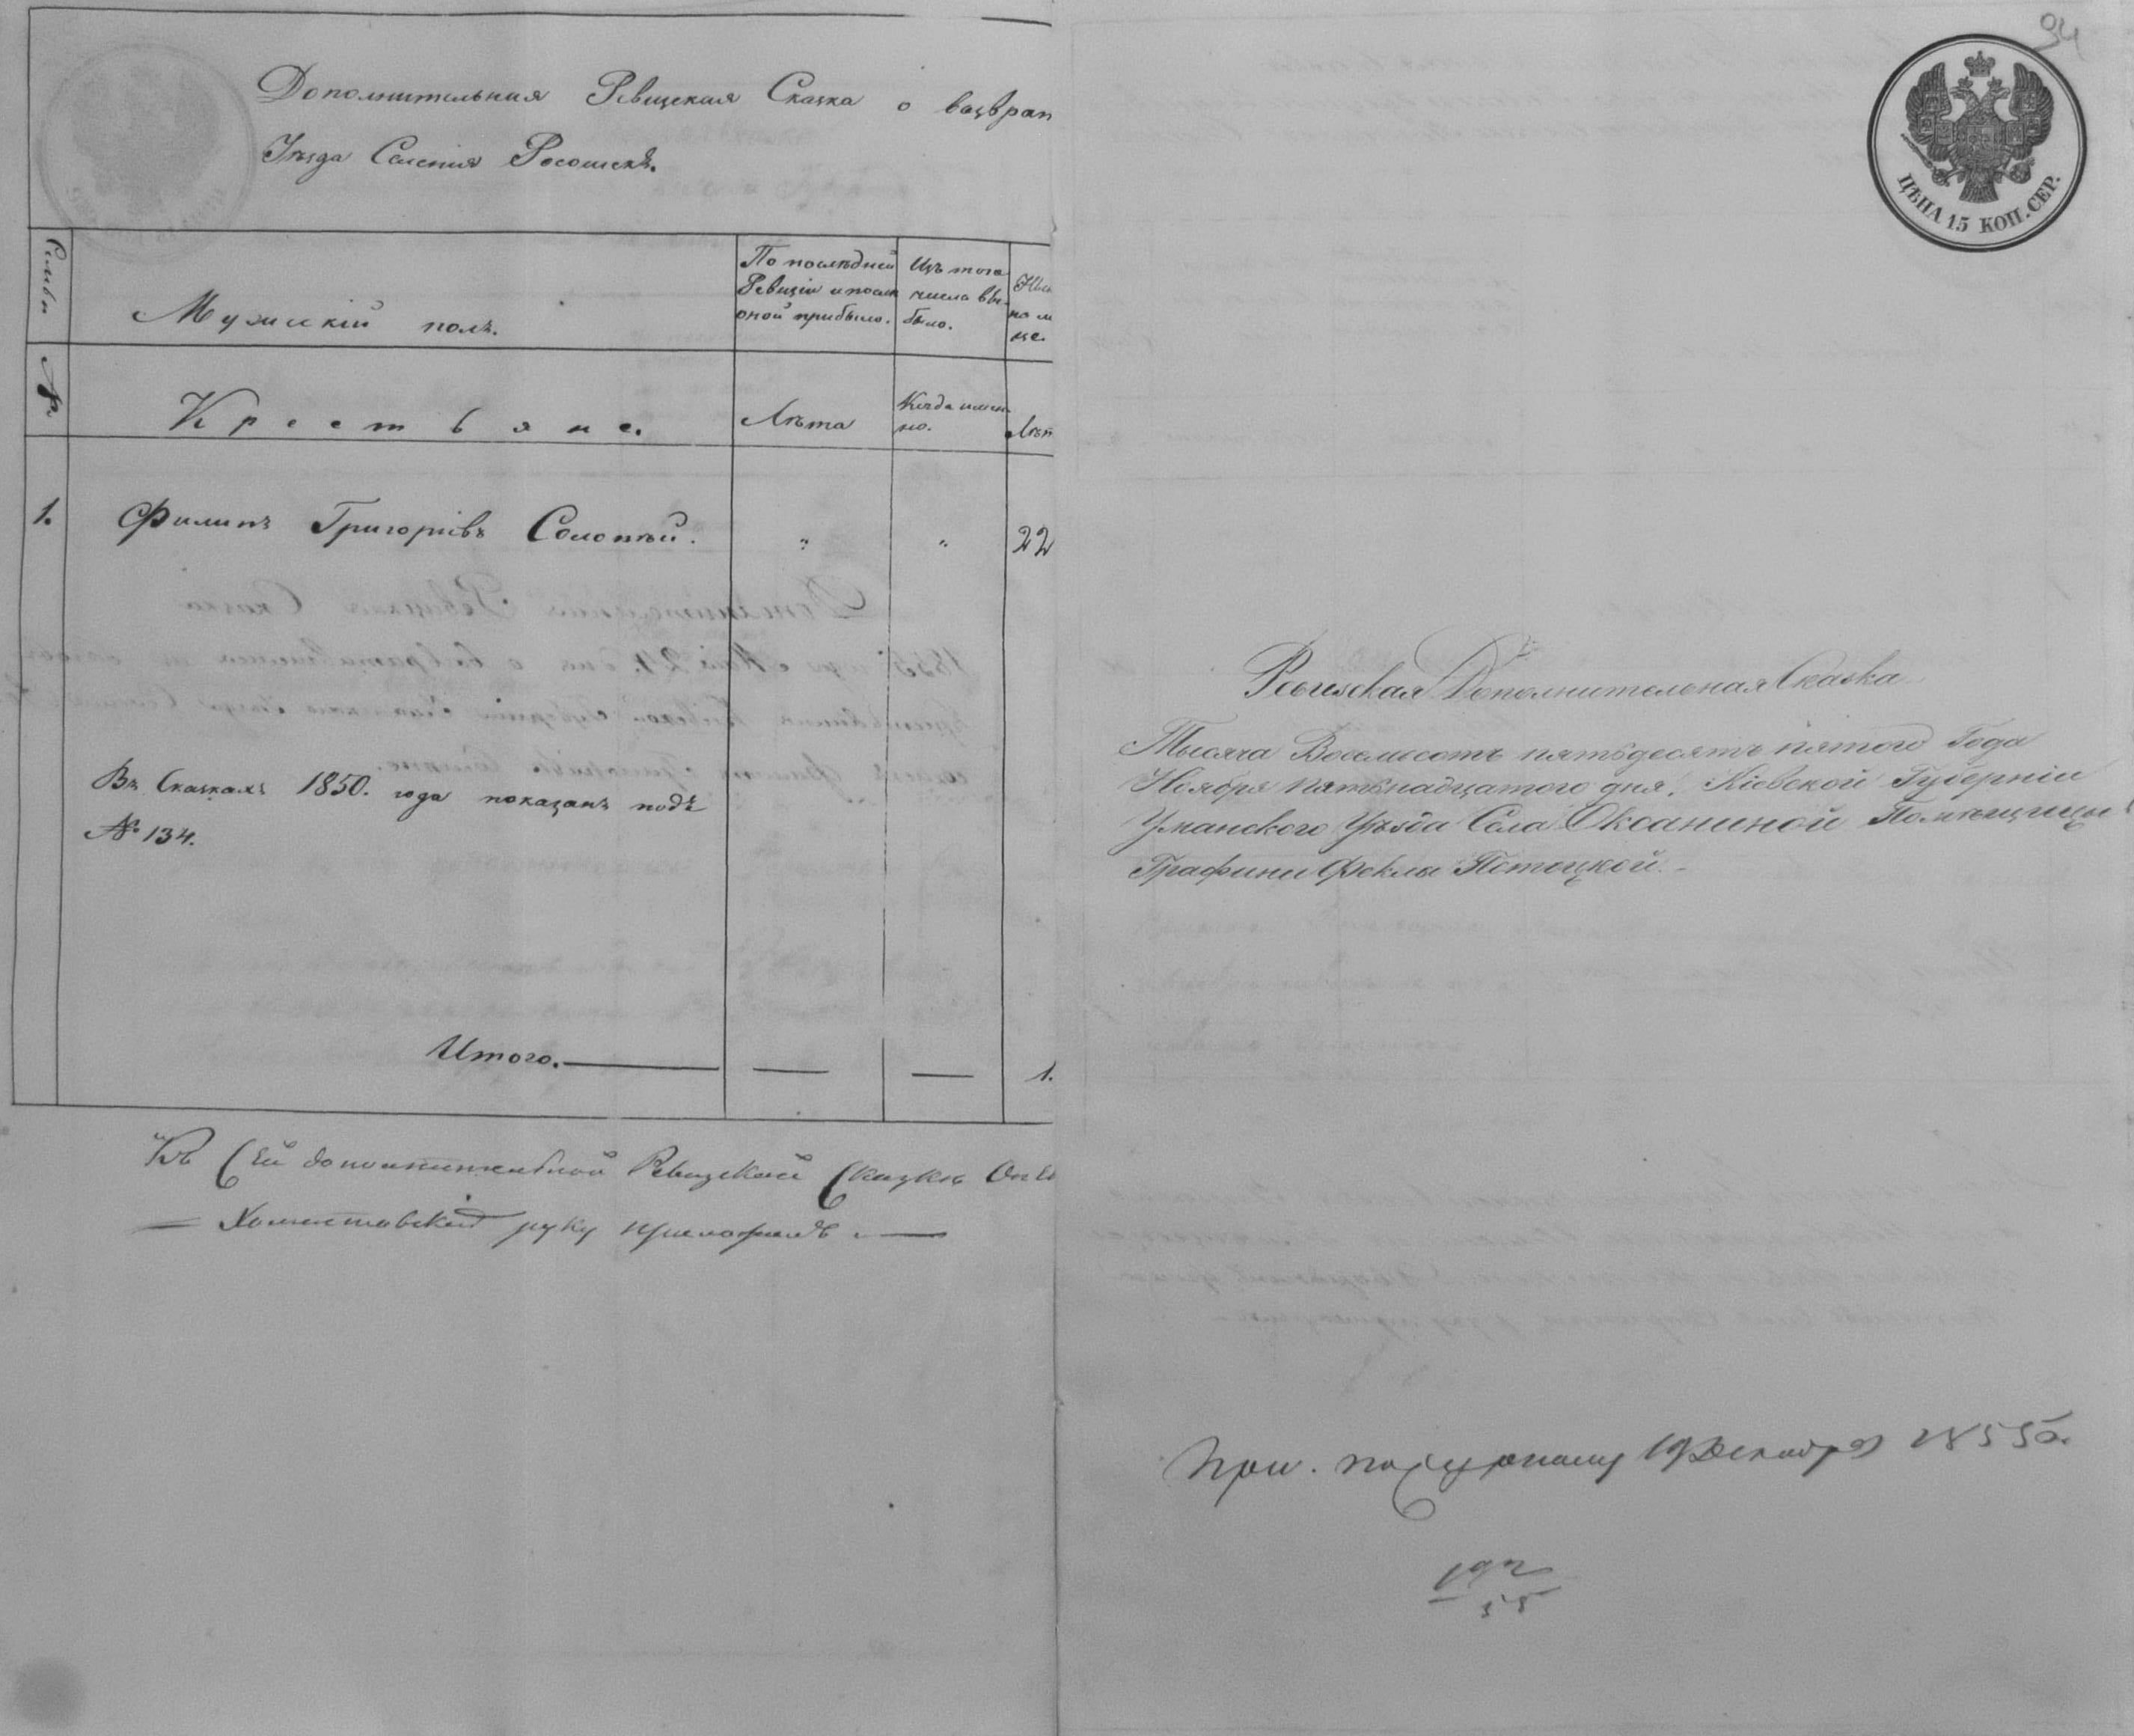 Дополнительная Ревизская Сказка о возврат
Уѣзда Селенія Росошекъ.
Семьи
Мужескій полъ.
По послѣдней
Ревизіи и послѣ
оной прибыло.
Изъ того
числа вы-
было.
Ны
на л
це.
№
Крестьяне.
Лѣта
Когда имен-
но.
Лѣт
1.
Филипъ Григоріевъ Солопѣй.
"
"
22
Въ Сказкахъ 1850. года показанъ подъ
№ 134.
Итого.
1.
Къ Сей дополнительной Ревизской Сказкѣ
руку приложилъ.
94
ЦѢНА 15 КОП. СЕР.
Ревизская Дополнительная Сказка
Тысяча Восемьсотъ пятьдесятъ пятого Года
Ноября пятьнадцатого дня. Кіевской Губерніи
Уманского Уѣзда Села Оксаниной Помѣщицы
Графини Феклы Потоцкой.
19 Декабря 1855 г.